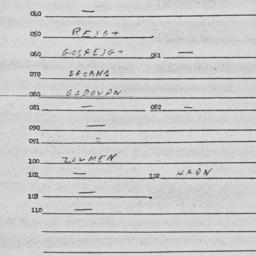 040 —
050 REJG+
060 GOSREJG+ 061 —
070 DROANS
080 GIDOVAN
081 — 082 —
090 —
091
100 ZOUMEN
101 — 102 HARN
103 —
110 —